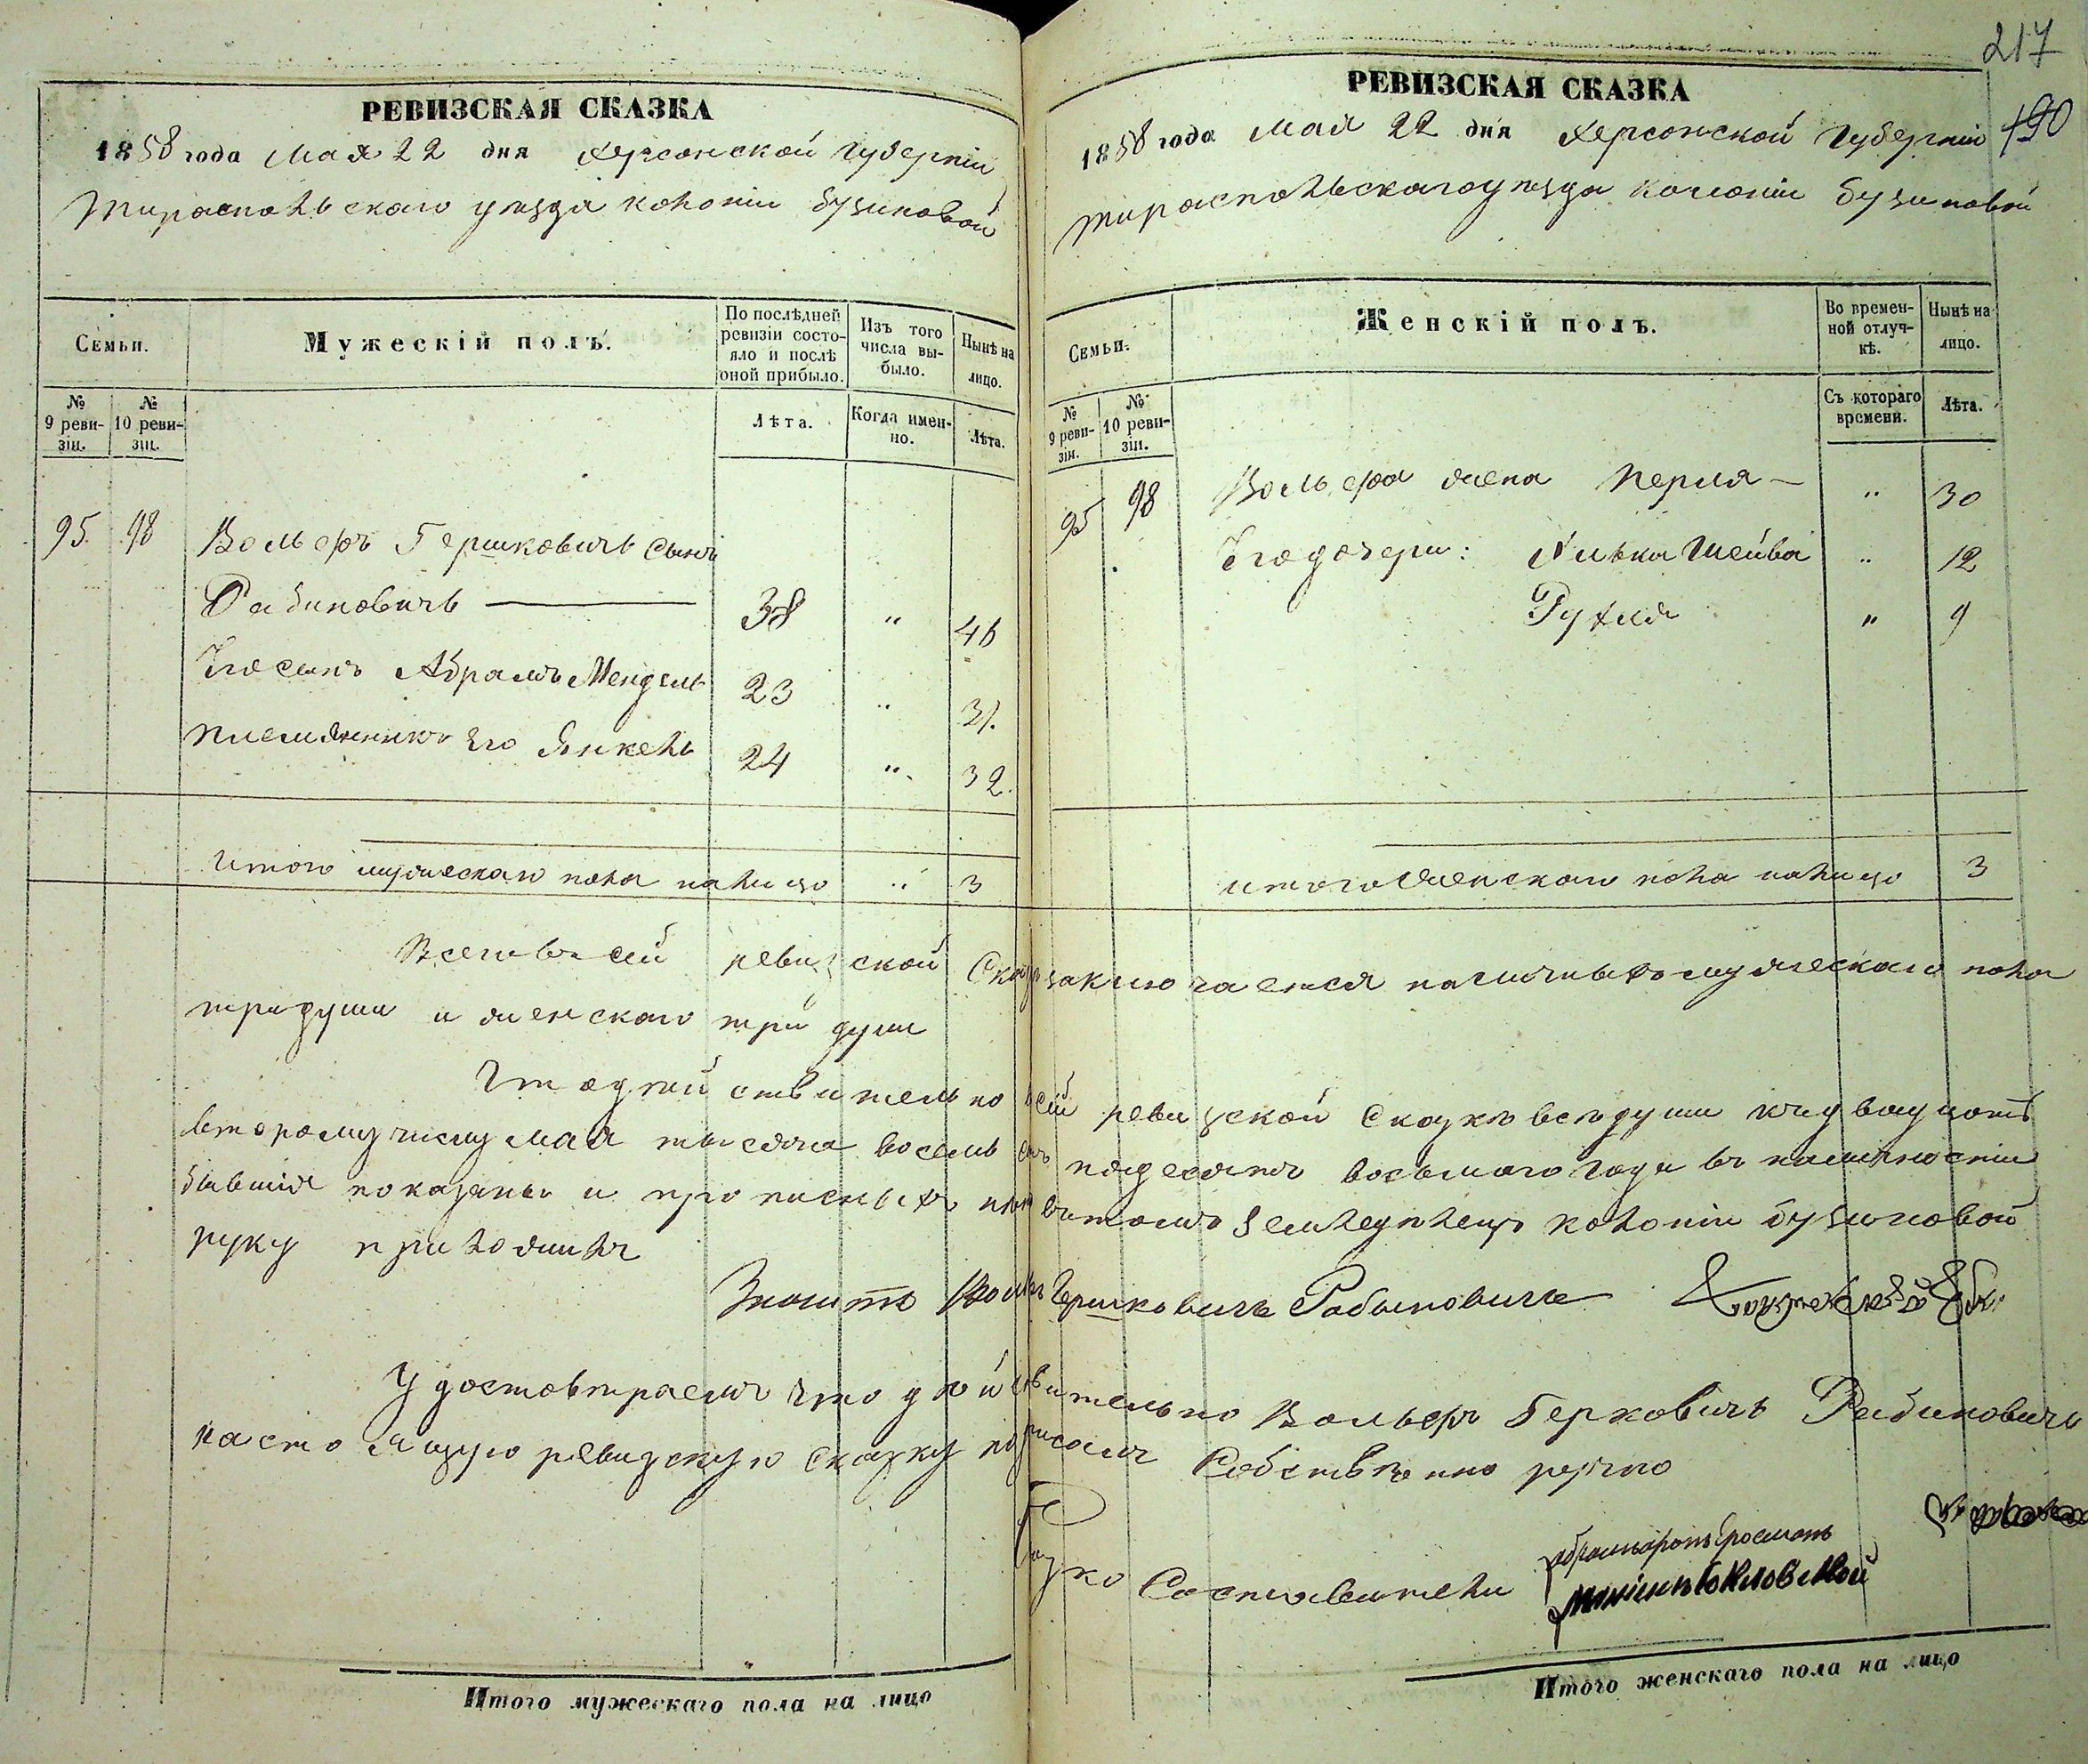 217
190
РЕВИЗСКАЯ СКАЗКА
1858 года Мая 22 дня Херсонской Губерніи
Тираспольскаго уѣзда колоніи Бузиновой
Семьи.
Мужескій полъ.
По послѣдней ревизіи состояло и послѣ оной прибыло.
Изъ того числа выбыло.
Нынѣ на лицо.
№ 9 ревизіи.
№ 10 ревизіи.
Лѣта.
Когда именно.
Лѣта.
95. 98 Вольфъ Гершковичъ Сынъ
Рабиновичъ — 38 " 46
Его сынъ Абрамъ Мендель 23 " 31.
Племянникъ Его Янкель 24 " 32.
Итого мужескаго пола налицо " 3
РЕВИЗСКАЯ СКАЗКА
1858 года Мая 22 дня Херсонской Губерніи
Тираспольскаго уѣзда колоніи Бузиновой
Семьи.
Женскій полъ.
Во временной отлучкѣ.
Нынѣ на лицо.
№ 9 ревизіи.
№ 10 ревизіи.
Съ котораго времени.
Лѣта.
95 98 Вольфа жена Перля — " 30
Его дочери: Ливка Шейва " 12
Рухля " 9
Итого женскаго пола налицо 3
Всего въ сей ревизской Сказке заключается наличныхъ мужескаго пола
три души и женскаго три души
Что действительно всей ревизской Сказкѣ всѣ души къ двадцать
второму числу мая тысяча восемь сотъ пядесятъ восьмаго года въ наличности
бывшія показаны и прописныхъ нѣтъ въ томъ Земледѣлецъ колоніи Бузиновой
руку приложилъ
Вольфъ Гершковичъ Рабыновичъ
Удостовѣраемъ что дѣйствительно Вольфъ Берковичъ Рабиновичъ
настоящую ревизскую сказку подписалъ Собственно ручно
Составители
Итого мужескаго пола на лицо
Итого женскаго пола на лицо